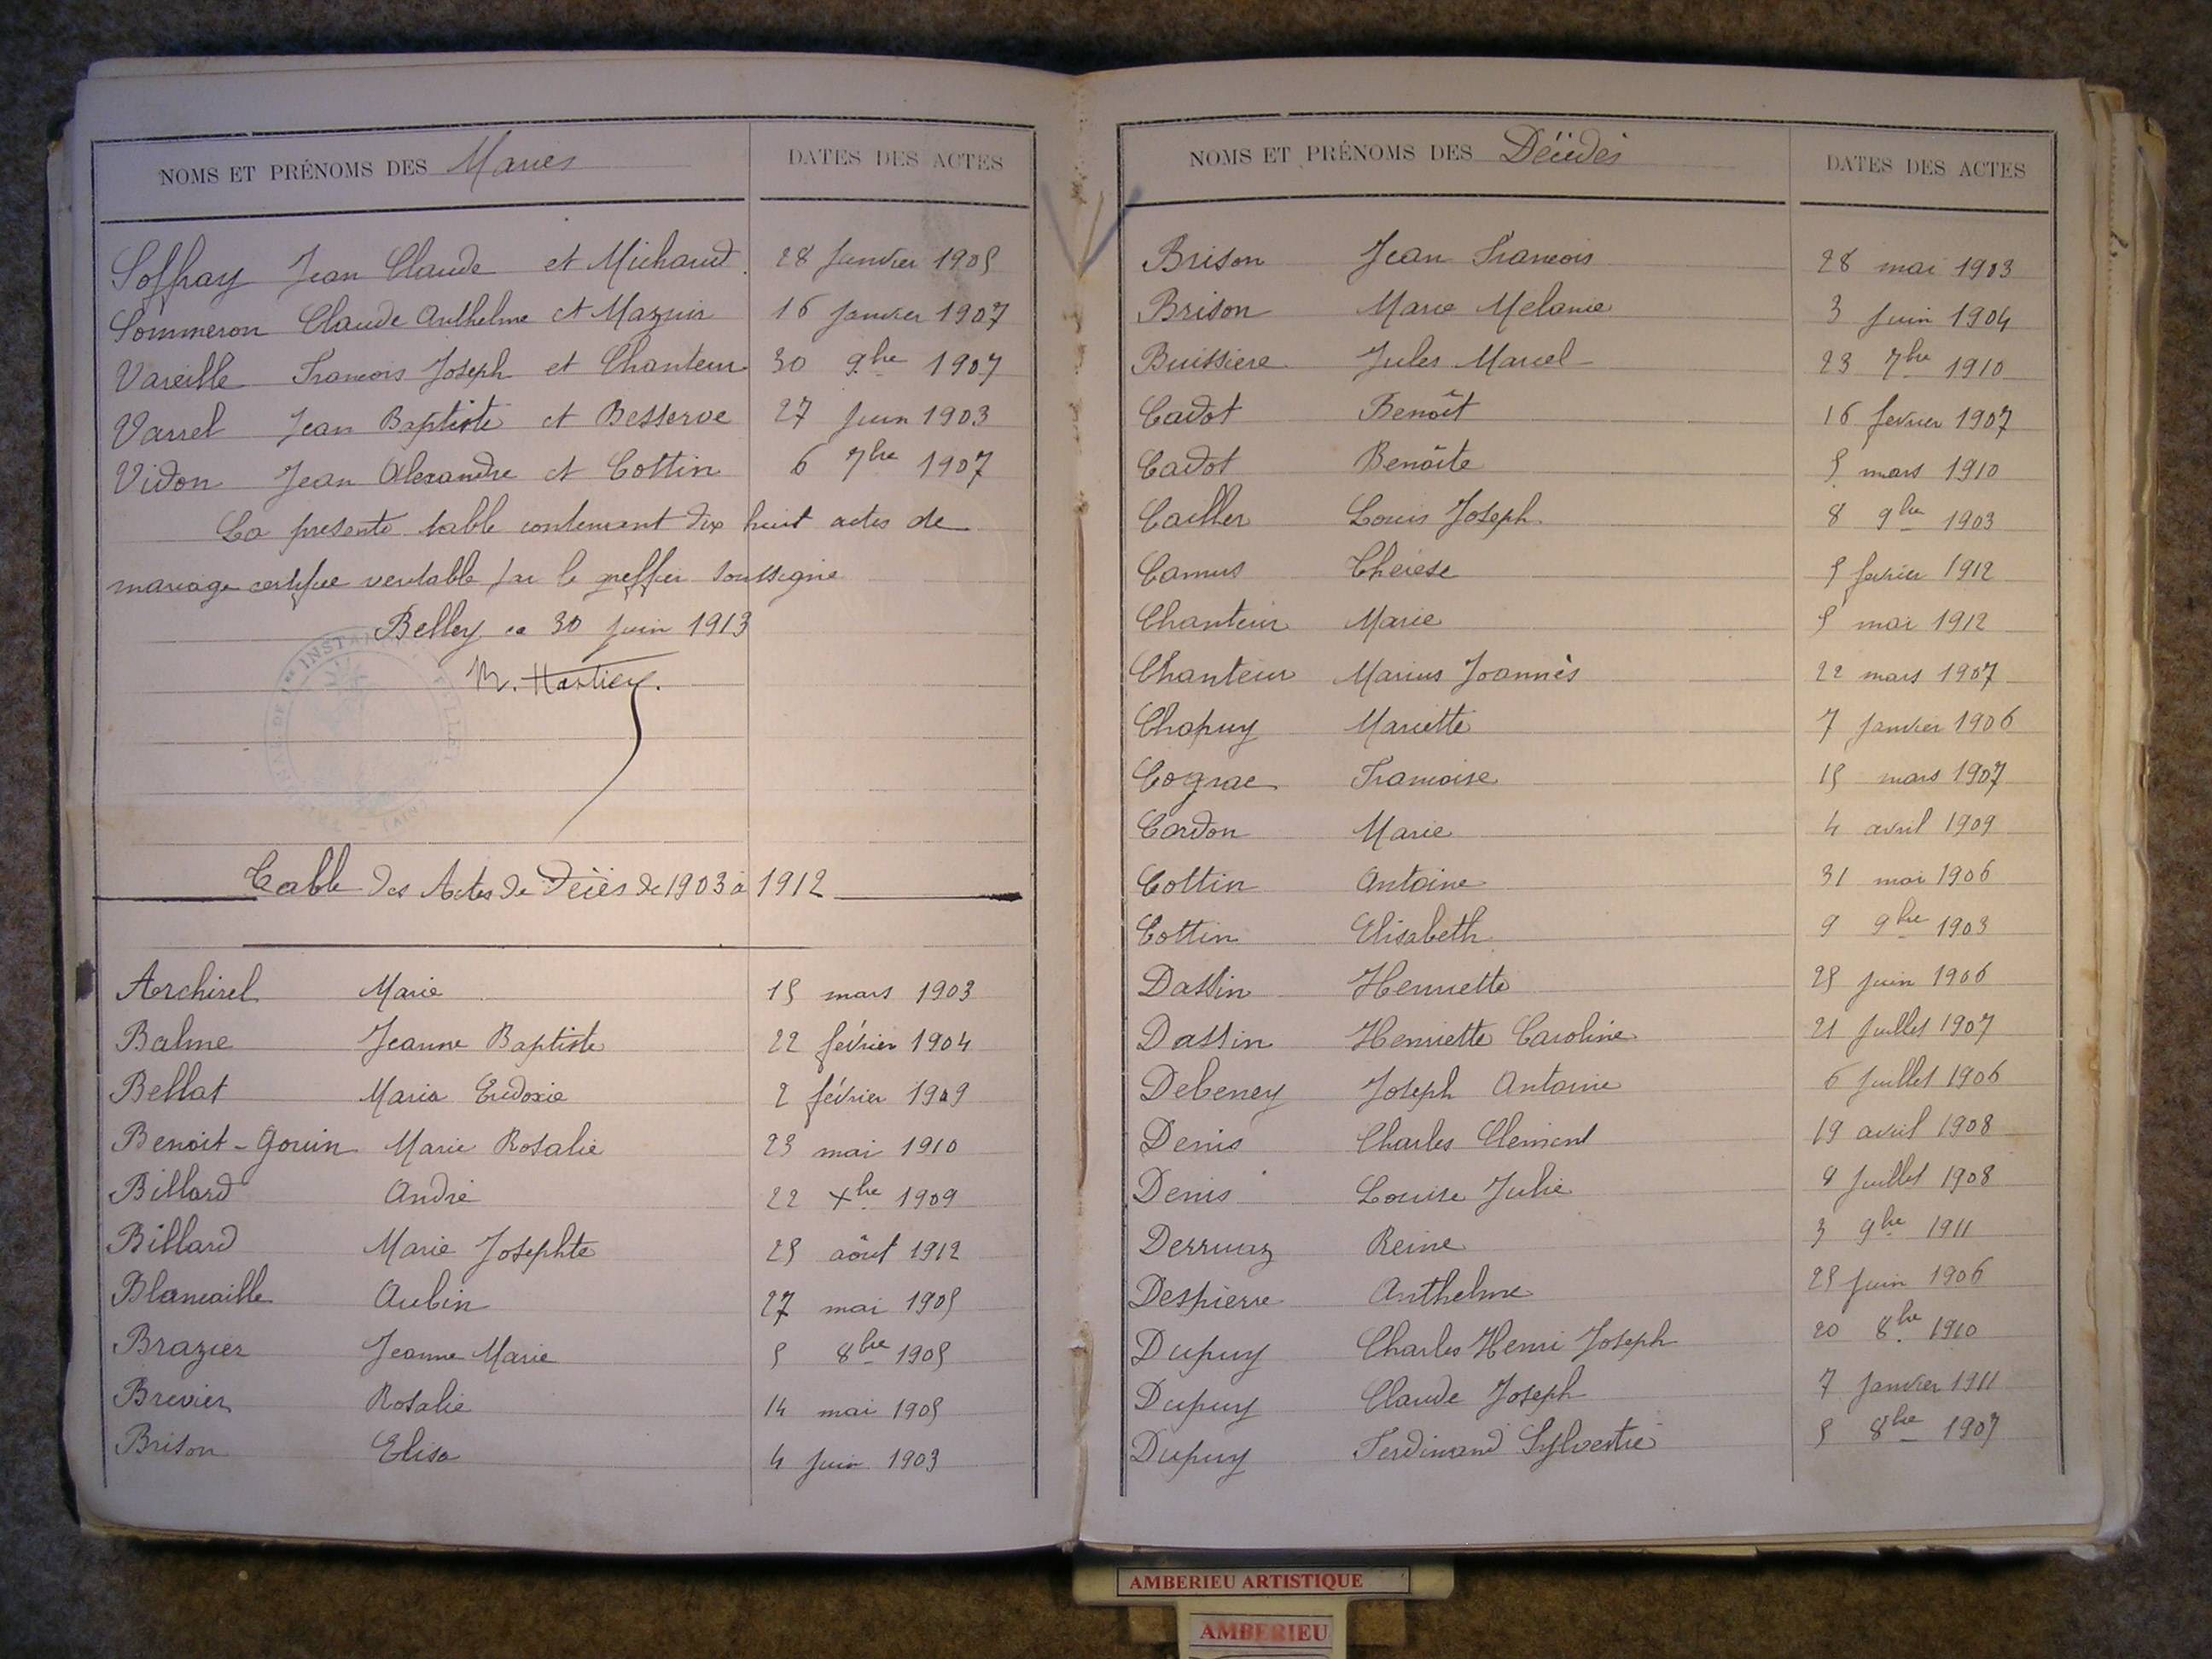 NOMS ET PRÉNOMS DES Mariés DATES DES ACTES
Soffray Jean Claude et Michaud 28 Janvier 1905
Sommeron Claude Anthelme et Mazuir 16 Janvier 1907
Vareille Francois Joseph et Chanteur 30 9bre 1907
Varrel Jean Baptiste et Besserve 27 Juin 1903
Vidon Jean Alexandre et Cottin 6 7bre 1907
La presente table contenant dix huit actes de
mariage certifiée veritable par le greffier soussigné
Belley ce 30 Juin 1913
INSTAN
Table des Actes de Décès de 1903 à 1912
Archirel Marie 15 mars 1903
Balme Jeanne Baptiste 22 février 1904
Bellat Maria Eudoxie 2 février 1909
Benoit-Gouin Marie Rosalie 23 mai 1910
Billard André 22 Xbre 1909
Billard Marie Josephte 25 août 1912
Blancaille Aubin 27 mai 1905
Brazier Jeanne Marie 5 8bre 1905
Brevier Rosalie 14 mai 1905
Brison Elisa 4 Juin 1903
NOMS ET PRÉNOMS DES Décédés DATES DES ACTES
Brison Jean Francois 28 mai 1903
Brison Marie Melanie 3 Juin 1904
Buissiere Jules Marcel 23 7bre 1910
Cadot Benoît 16 fevrier 1907
Cadot Benoîte 5 mars 1910
Cailler Louis Joseph 8 9bre 1903
Camus Thérèse 5 fevrier 1912
Chanteur Marie 5 mai 1912
Chanteur Marius Joannès 22 mars 1907
Chapuy Mariette 7 Janvier 1906
Cognac Francoise 15 mars 1907
Cordon Marie 4 avril 1909
Cottin Antoine 31 mai 1906
Cottin Elisabeth 9 9bre 1903
Dassin Henriette 25 Juin 1906
Dassin Henriette Caroline 21 Juillet 1907
Debeney Joseph Antoine 6 Juillet 1906
Denis Charles Clement 19 avril 1908
Denis Louise Julie 9 Juillet 1908
Derruaz Reine 3 9bre 1911
Despierre Anthelme 25 Juin 1906
Dupuy Charles Henri Joseph 20 8bre 1910
Dupuy Claude Joseph 7 Janvier 1911
Dupuy Ferdinand Sylvestre 5 8bre 1907
AMBERIEU ARTISTIQUE
AMBERIEU